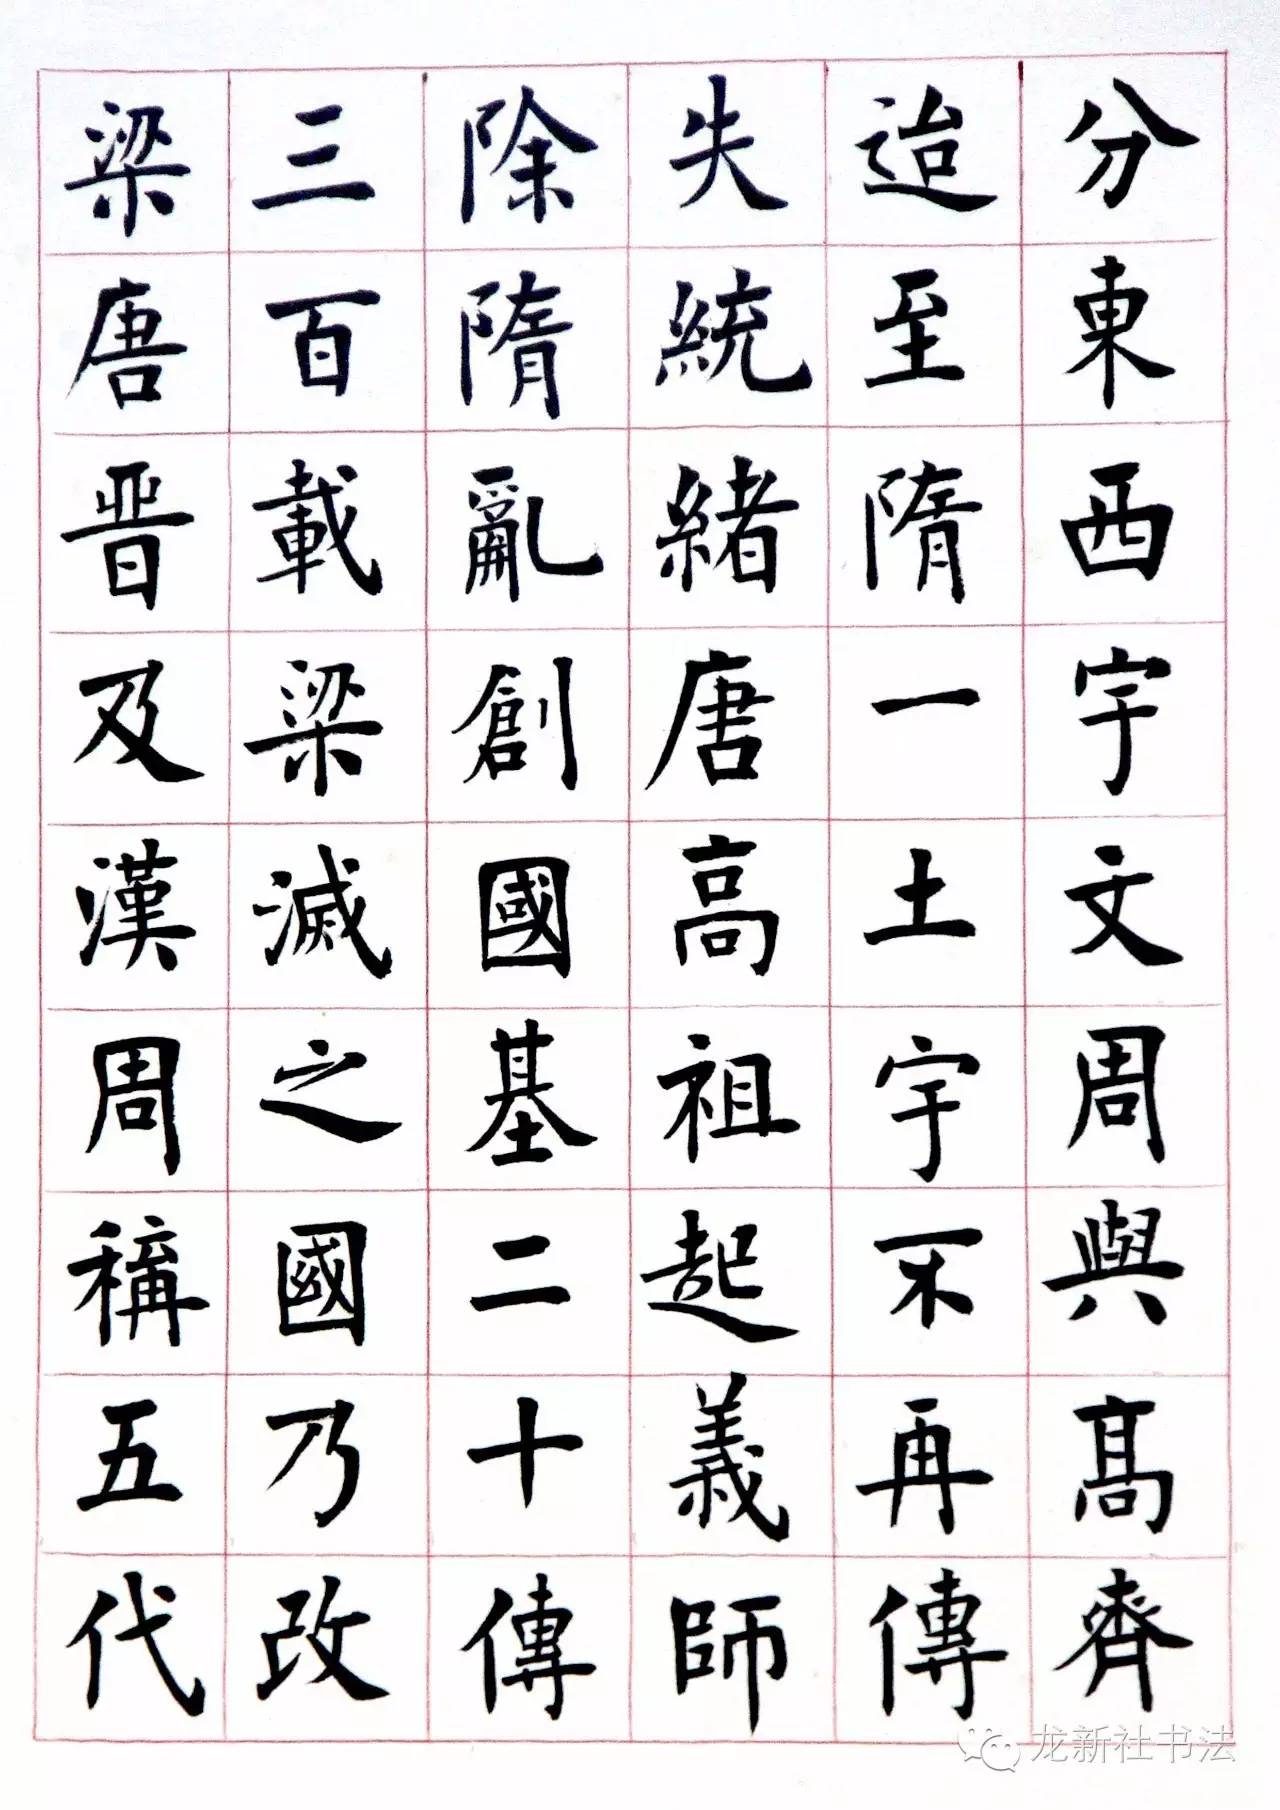 分東西宇文周與高齊
迨至隋一土宇不再傳
失統緒唐高祖起義師
除隋亂創國基二十傳
三百載梁滅之國乃改
梁唐晉及漢周稱五代
龙新社书法